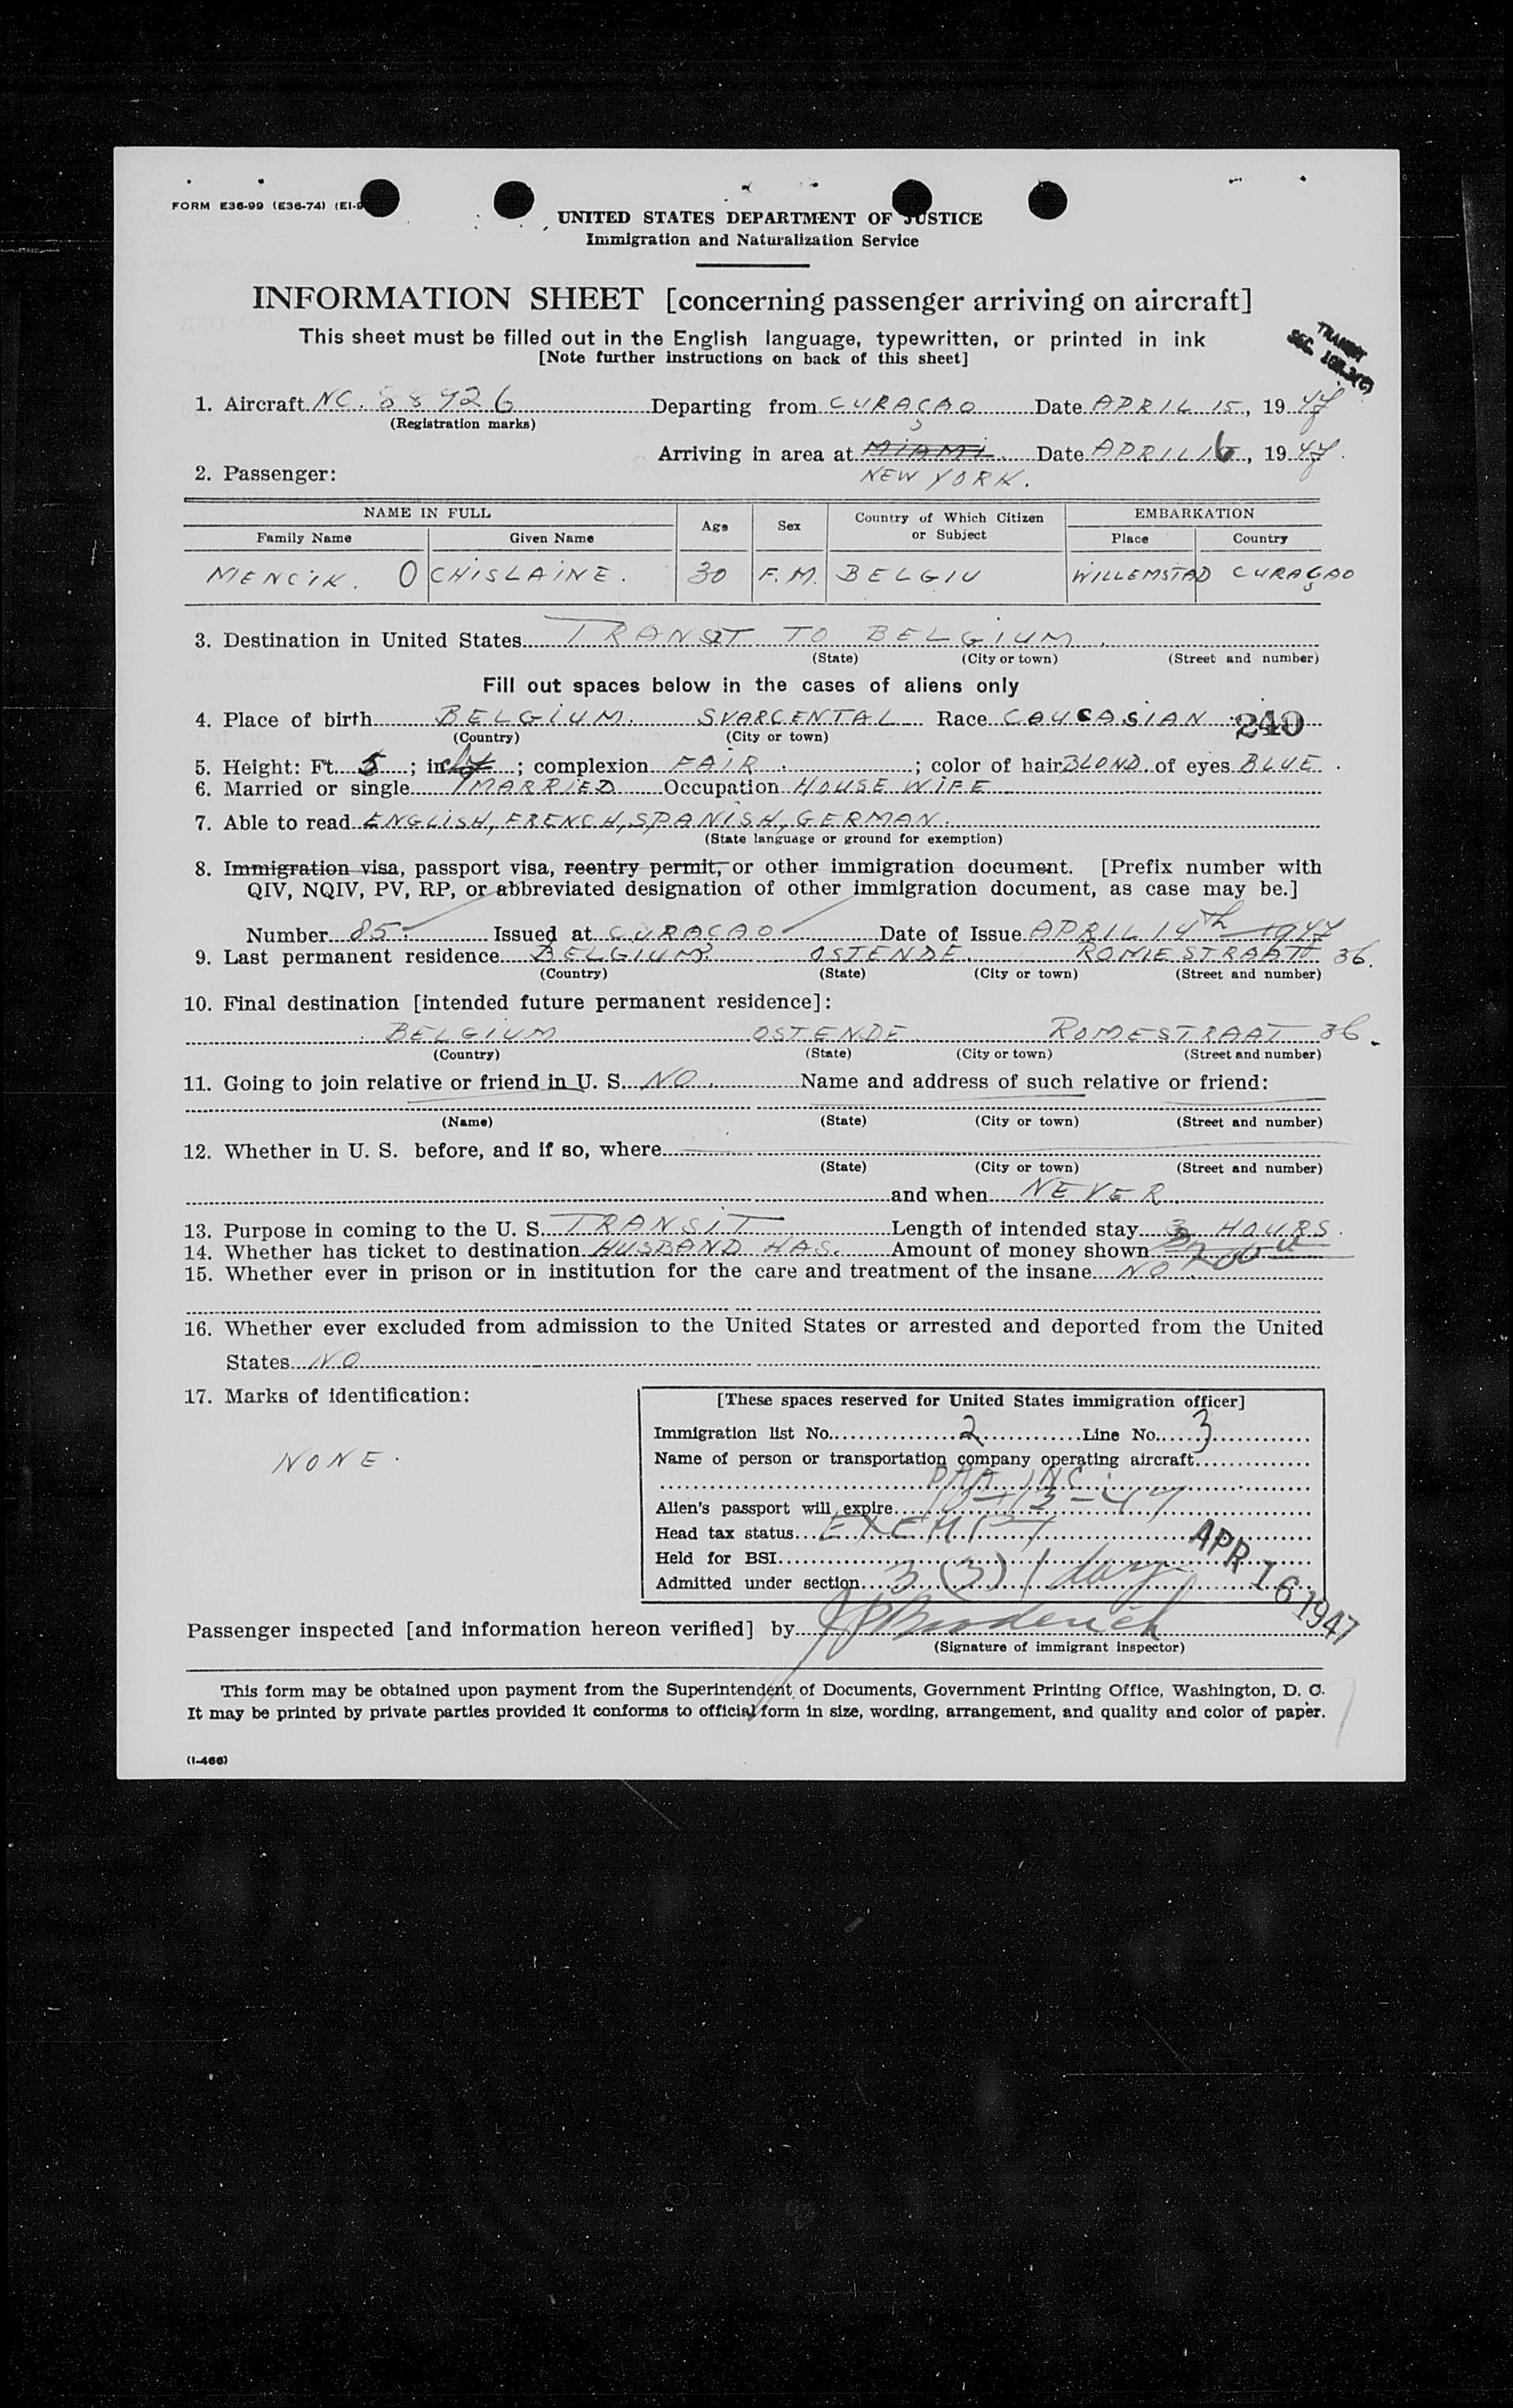 FORM E36-99 (E36-74) (EI-9
UNITED STATES DEPARTMENT OF JUSTICE
Immigration and Naturalization Service
INFORMATION SHEET [concerning passenger arriving on aircraft]
This sheet must be filled out in the English language, typewritten, or printed in ink
[Note further instructions on back of this sheet]
TRANSIT
SEC.
1. Aircraft NC. 88926 Departing from CURAÇAO Date APRIL 15, 1947
(Registration marks)
Arriving in area at MIAMI Date APRIL 16, 1947.
2. Passenger: NEW YORK.
NAME IN FULL Age Sex Country of Which Citizen or Subject EMBARKATION
Family Name Given Name Place Country
MENCIK. O CHISLAINE. 30 F.M. BELGIU WILLEMSTAD CURAÇAO
3. Destination in United States TRANSIT TO BELGIUM.
(State) (City or town) (Street and number)
Fill out spaces below in the cases of aliens only
4. Place of birth BELGIUM. SVARCENTAL Race CAUCASIAN 240
(Country) (City or town)
5. Height: Ft. 5; in. ; complexion FAIR.; color of hair BLOND. of eyes BLUE.
6. Married or single MARRIED Occupation HOUSE WIFE
7. Able to read ENGLISH, FRENCH, SPANISH, GERMAN.
(State language or ground for exemption)
8. Immigration visa, passport visa, reentry permit, or other immigration document. [Prefix number with
QIV, NQIV, PV, RP, or abbreviated designation of other immigration document, as case may be.]
Number 85 Issued at CURACAO Date of Issue APRIL 14th 1947
9. Last permanent residence BELGIUM OSTENDE. ROMESTRAAT 36.
(Country) (State) (City or town) (Street and number)
10. Final destination [intended future permanent residence]:
BELGIUM OSTENDE. ROMESTRAAT 36.
(Country) (State) (City or town) (Street and number)
11. Going to join relative or friend in U. S. NO. Name and address of such relative or friend:
(Name) (State) (City or town) (Street and number)
12. Whether in U. S. before, and if so, where
(State) (City or town) (Street and number)
and when NEVER.
13. Purpose in coming to the U. S. TRANSIT Length of intended stay 3 HOURS.
14. Whether has ticket to destination HUSBAND HAS. Amount of money shown
15. Whether ever in prison or in institution for the care and treatment of the insane NO.
16. Whether ever excluded from admission to the United States or arrested and deported from the United
States NO
17. Marks of identification:
NONE.
[These spaces reserved for United States immigration officer]
Immigration list No. 2 Line No. 3
Name of person or transportation company operating aircraft
PAA INC.
Alien's passport will expire 10-13-47
Head tax status EXEMPT
Held for BSI
Admitted under section 3 (3) 1 day
APR 16 1947
Passenger inspected [and information hereon verified] by J P Broderick
(Signature of immigrant inspector)
This form may be obtained upon payment from the Superintendent of Documents, Government Printing Office, Washington, D. C.
It may be printed by private parties provided it conforms to official form in size, wording, arrangement, and quality and color of paper.
(I-466)